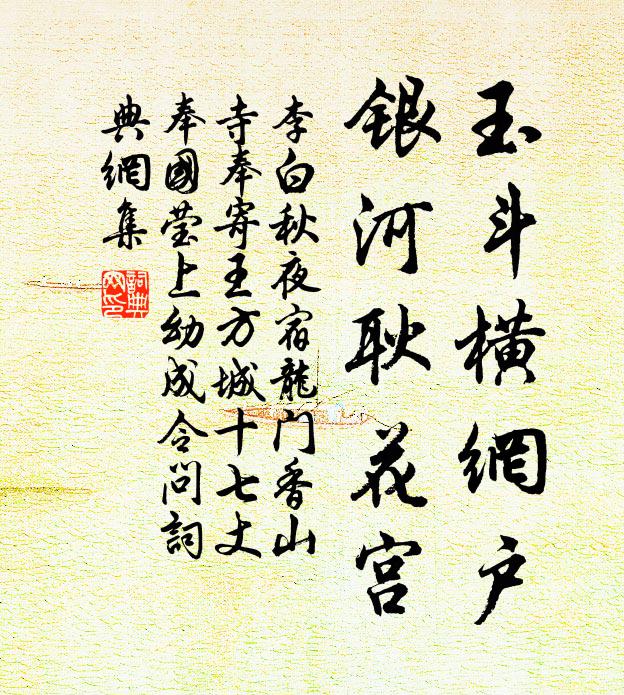 玉斗橫網户
銀河耿花宮
李白秋夜宿龍門香山
寺奉寄王方城十七丈
奉國瑩上幼成令問詞
典網集
詞典
网印